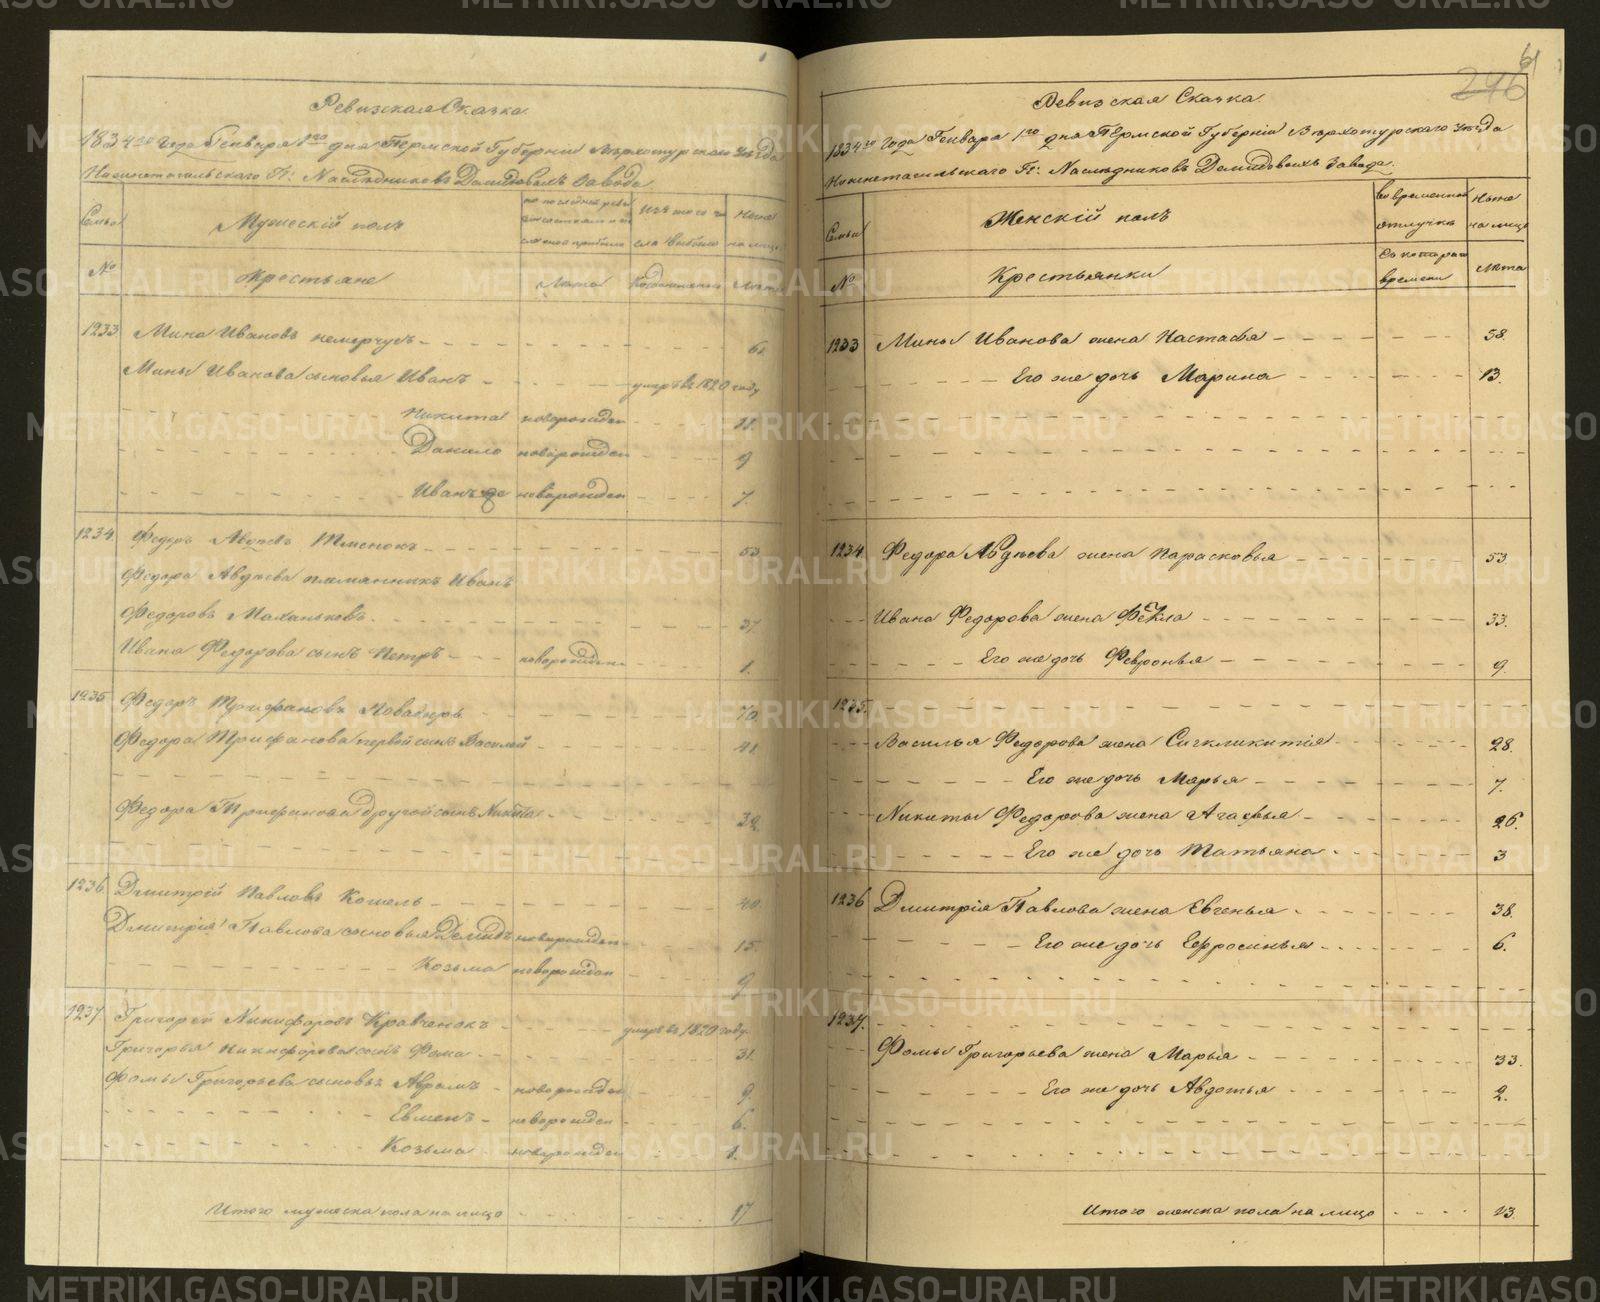 Ревизская Сказка.
1834го Года Генваря 1го дня Пермской Губернии Верхотурскаго уезда
Нижнетагильскаго Г: Наследниковъ Демидовыхъ завода
Семьи
Мужескій полъ
Изъ того чи
сла выбыло
Ныне
на лицо
№
Крестьяне
Лета
Когда именно
Лета
1233 Мина Ивановъ 61
Мины Иванова сыновья Иванъ умеръ въ 1820 году
Никита новорожден 11.
Данило новорожден 9
Иванъ же новорожден 7.
1234. Федоръ Авдеевъ 53
Федора Авдеева племянникъ Иванъ
Федоровъ Маханьковъ 37.
Ивана Федорова сынъ Петръ новорожден 1.
1235 Федоръ Трифановъ 70.
Федора Трифанова первой сынъ Василей 41.
Федора Трифанова другой сынъ Никита 32.
1236 Дмитрій Павловъ Кошель 40.
Дмитрія Павлова сыновья Демидъ новорожден 15.
Козьма новорожден 9
1237 Григорей Никифоровъ Кравченокъ умеръ въ 1820 году.
Григорья Никифорова сынъ Фома 31.
Фомы Григорьева сыновья Аврамъ новорожден 9.
Евменъ новорожден 6.
Козьма новорожден 1.
Итого мужеска пола на лицо 17
61
246
Ревизская Сказка.
1834го Года Генваря 1го дня Пермской Губерніи Верхотурскаго уезда
Нижнетагильскаго Г: Наследниковъ Демидовыхъ завода.
Семьи
Женскій полъ
во временной
отлучке
Ныне
на лицо
№
Крестьянки
Съ котораго
времени
Лета
1233 Мины Иванова жена Настасья 58.
Его же дочь Марина 13.
1234. Федора Авдеева жена Парасковья 53
Ивана Федорова жена Фекла 33.
Его же дочь Февронья 9.
1235.
Василья Федорова жена Сигкликитія 28.
Его же дочь Марья 7.
Никиты Федорова жена Агафья 26.
Его же дочь Татьяна 3
1236 Дмитрія Павлова жена Евгенья 38.
Его же дочь Ефросинья 6.
1237.
Фомы Григорьева жена Марья 33.
Его же дочь Авдотья 2.
Итого женска пола на лицо 13.
METRIKI.GASO-URAL.RU